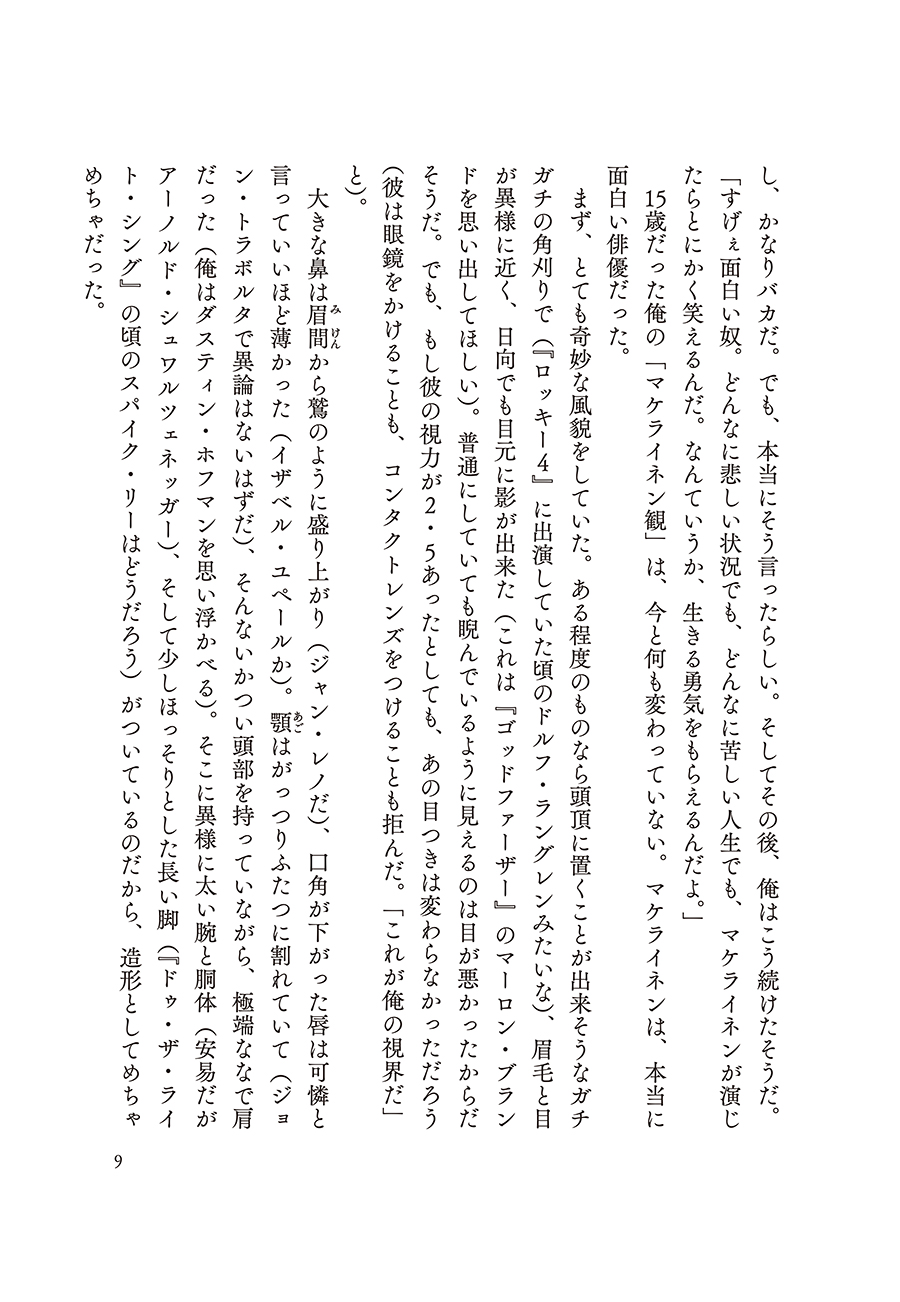 し、かなりバカだ。でも、本当にそう言ったらしい。そしてその後、俺はこう続けたそうだ。
「すげぇ面白い奴。どんなに悲しい状況でも、どんなに苦しい人生でも、マケライネンが演じ
たらとにかく笑えるんだ。なんていうか、生きる勇気をもらえるんだよ。」
15歳だった俺の「マケライネン観」は、今と何も変わっていない。マケライネンは、本当に
面白い俳優だった。
まず、とても奇妙な風貌をしていた。ある程度のものなら頭頂に置くことが出来そうなガチ
ガチの角刈りで（『ロッキー4』に出演していた頃のドルフ・ラングレンみたいな）、眉毛と目
が異様に近く、日向でも目元に影が出来た（これは『ゴッドファーザー』のマーロン・ブラン
ドを思い出してほしい）。普通にしていても睨んでいるように見えるのは目が悪かったからだ
そうだ。でも、もし彼の視力が2・5あったとしても、あの目つきは変わらなかっただろう
（彼は眼鏡をかけることも、コンタクトレンズをつけることも拒んだ。「これが俺の視界だ」
と）。
大きな鼻は眉間から鷲のように盛り上がり（ジャン・レノだ）、口角が下がった唇は可憐と
みけん
言っていいほど薄かった（イザベル・ユペールか）。顎はがっつりふたつに割れていて（ジョ
あご
ン・トラボルタで異論はないはずだ）、そんないかつい頭部を持っていながら、極端ななで肩
だった（俺はダスティン・ホフマンを思い浮かべる）。そこに異様に太い腕と胴体（安易だが
アーノルド・シュワルツェネッガー）、そして少しほっそりとした長い脚（『ドゥ・ザ・ライ
ト・シング』の頃のスパイク・リーはどうだろう）がついているのだから、造形としてめちゃ
めちゃだった。
9